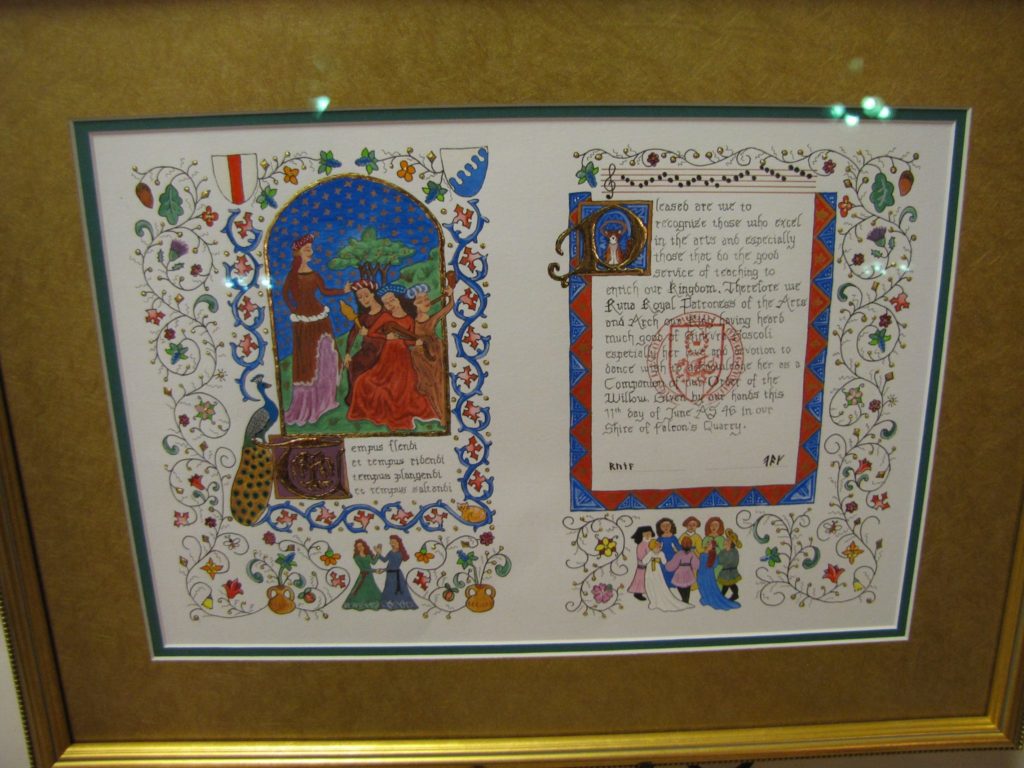 Tempus flendi
et tempus ridendi
tempus plangendi
et tempus saltandi
Pleased are we to
recognize those who excel
in the arts and especially
those that do the good
service of teaching to
enrich our Kingdom. Therefore we
Runa Royal Patroness of the Arts
and Arch having heard
much good of
especially her love and devotion to
dance her as a
Companion of Order of the
Willow. Given by our hands this
11th day of June AS 46 in our
Shire of Falcon's Quarry.